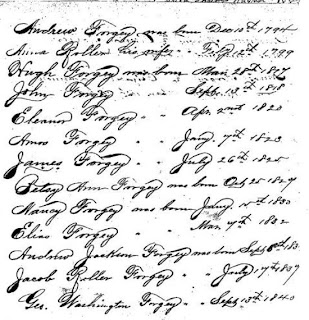 Andrew Forgey was born Dec 10th 1794
Anna Roller his wife " Feb 12th 1799
Hugh Forgey was born Mar 28th 1817
John Forgey " " Sept 13th 1818
Eleanor Forgey " " Apr 2nd 1820
Amos Forgey " " Jany 7th 1823
James Forgey " " July 26th 1825
Betsy Ann Forgey was born Oct 25 1827
Nancy Forgey was born Jany 1st 1830
Elias Forgey " " Mar 7th 1832
Andrew Jackson Forgey was born Sept
Jacob Roller Forgey " " July 17th 1837
Geo. Washington Forgey " " Sept 13th 1840